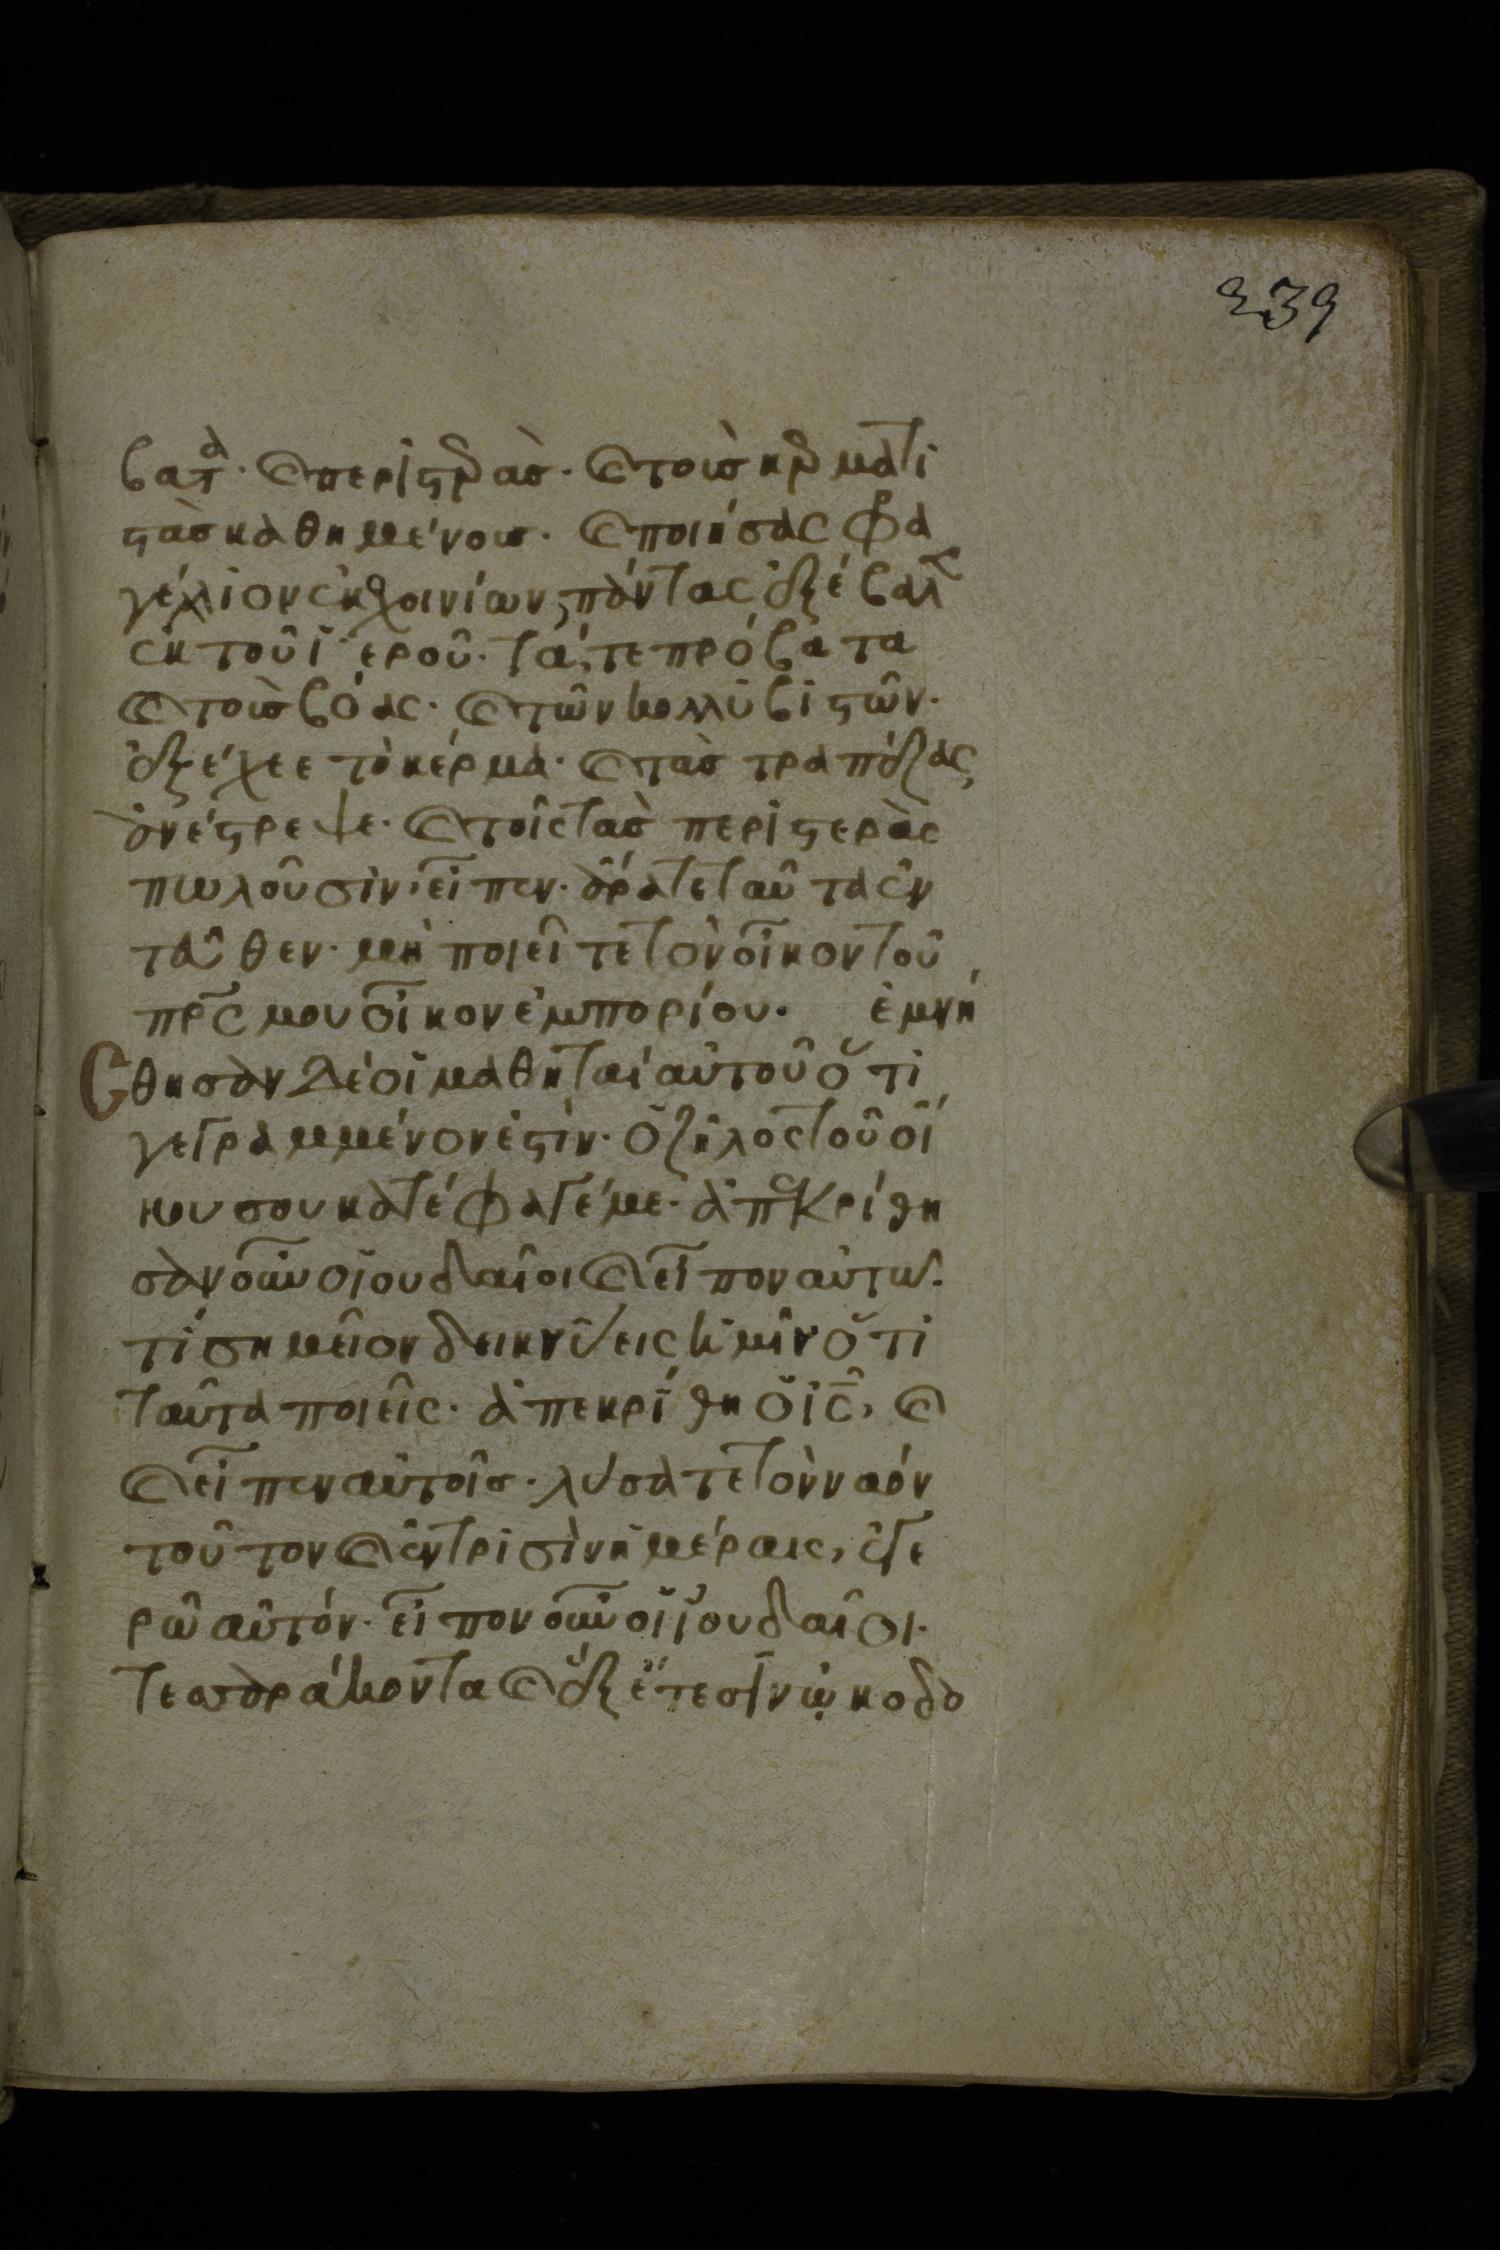 239
βατ(α)· κ(αὶ) περιστ(ε)ρὰσ· κ(αὶ) τοὺσ κ(ε)ρματι
στὰσ καθημένουσ· κ(αὶ) ποιήσας φρα
γέλλιον ἐκ σχοινίων, πάντας ἐξέβαλεν
ἐκ τοῦ ϊεροῦ· τά, τε πρόβατα
κ(αὶ) τοὺσ βόας· κ(αὶ) τῶν κολλυβιστῶν·
ἐξέχεε τὸ κέρμα· κ(αὶ) τὰσ τραπέζας
ἀνέστρεψε· κ(αὶ) τοῖς τὰσ περιστερὰς
πωλοῦσιν, εἶπεν· ἄρατε ταῦτα ἐν
τεῦθεν· μὴ ποιεῖτε τὸν οἶκον τοῦ
πρ̅ς μου οἶκον ἐμπορίου· ἐμνή
Ἐθησαν δὲ οἱ μαθηταὶ αὐτοῦ ὅτι
γεγραμμένον ἐστὶν· ὁ ζῆλος τοῦ οἴ
κου σου κατέφαγέ με· ἀπεκρίθη
σαν οὖν οἱ ουδαῖοι κ(αὶ) εἶπον αὐτῶ·
τί σημεῖον δεικνύεις ἡμῖν ὅτι
ταῦτα ποιεῖς· ἀπεκρίθη ὁ ι̅ς̅, κ(αὶ)
κ(αὶ) εἶπεν αὐτοῖσ· λύσατε τὸν ναόν
τοῦτον κ(αὶ) ἐν τρισὶν ἡμέραις, ἐγε
ρῶ αὐτόν· εἶπον οὖν οἱ ϊουδαῖοι·
τεσσαράκοντα κ(αὶ) ἐξ ἔτεσιν ὠκοδο